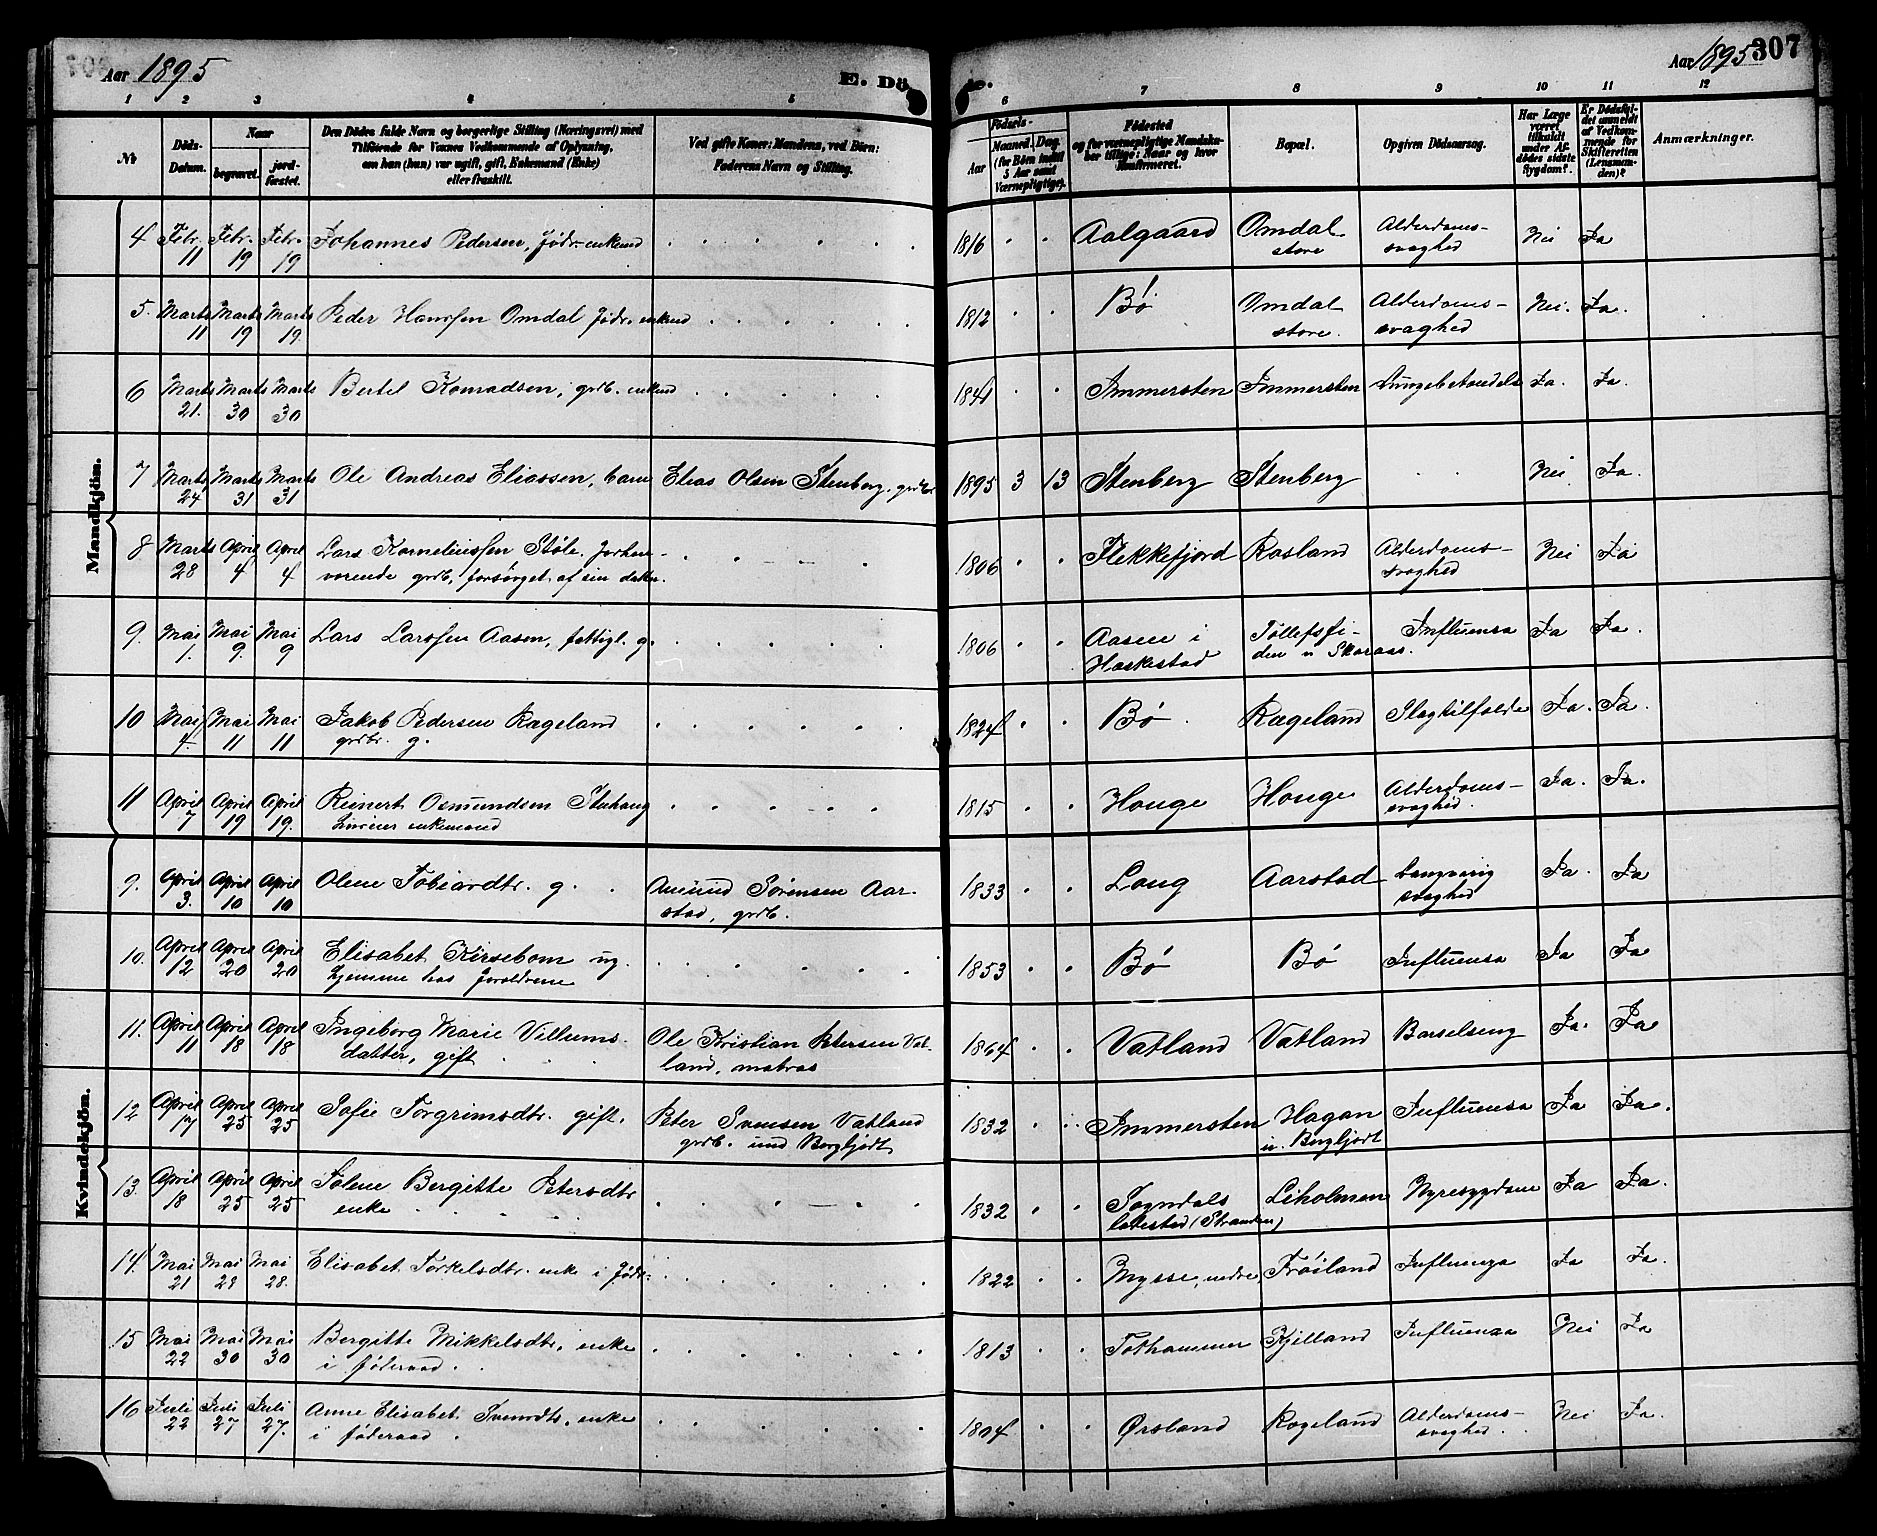 Aar 1895
E. Dö
e.
Aar 1895
307
1 2 3 4 5 6 7 8 9 10 11 12
No
Döds-Datum.
Naar
begravet.
jordfæstet.
Den Dödes fulde Navn og borgerlige Stilling (Næringsvei) med
Tilföiende for Voxnes Vedkommende af Oplysning,
om han (hun) var ugift, gift, Enkemand (Enke)
eller fraskilt.
Ved gifte Koner: Mandens, ved Börn:
Faderens Navn og Stilling.
Födsels-
Aar
Maaned. Dag
(for Börn indtil
5 Aar samt
Værnepligtige).
Födested
og for værnepligtige Mandskaber tillige: Naar og hvor
Konfirmeret.
Bopæl.
Opgiven Dödsaarsag.
Har Læge været tilkaldt under Afdödes sidste Sygdom?
Er Dödsfaldet anmeldt af Vedkommende for Skifteretten (Lensmanden)?
Anmærkninger.
Mandkjön.
4 Febr. 11 Febr. 19 Febr. 19 Johannes Pedersen, födr. enkemd 1816 Aalgaard Omdal store Alderdoms-svaghed Nei Ja
5. Marts 11 Marts 19 Marts 19. Peder Hanssen Omdal födr. enkemd 1812 Bø Omdal store. Alderdoms-svaghed Nei. Ja.
6 Marts 21. Marts 30 Marts 30 Bertel Konradsen, grdb. enkemd 1841 Immersten Immersten Lungebetændels Ja. Ja.
7 Marts 24 Marts 31 Marts 31 Ole Andreas Eliassen, barn Elias Olsen Stenberg. grdbr 1895 3 13 Stenberg Stenberg Nei. Ja.
8 Marts 28 April 4 April 4 Lars Korneliussen Støle. forhen-
værende grdb, forsørget af sin datter. 1806 Flekkefjord Rosland Alderdoms-svaghed Nei Ja
9. Mai 1. Mai 9. Mai 9 Lars Larssen Aasen, fattigl. g. 1806 Aasen i Heskestad Tollefsfi-
den u Skaraas. Influensa Ja Ja.
10 Mai 4. Mai 11 Mai 11 Jakob Pedersen Rægeland
grdbr. g. 1824 Bø Rægeland Slagtilfælde Ja. Ja.
11 April 7 April 19 April 19. Reinert Osmundsen
enkemand 1815 Houge Houge Alderdoms-svaghed. Ja. Ja.
Kvindekjön.
9. April 3. April 10 April 10 Olene Tobiasdtr. g. Amund Sørensen Aar-
stad, grdb. 1833 Long Aarstad Langvarig svaghed Ja. Ja
10. April 12. April 20 April 20 Elisabet Kirsebom ug.
hjemme hos forældrene 1853 Bø Bø Influensa Ja Ja
11. April 11 April 18 April 18 Ingeborg Marie Villums-
datter, gift Ole Kristian Petersen Vat-
land, matros 1864 Vatland Vatland Barselseng Ja. Ja
12 April 17 April 25 April 25 Sofie Torgrimsdtr. gift. Peter Svensen Vatland
grdb. und Bergljodt 1832 Immersten Hagan u. Bergljodt Influensa Ja Ja.
13. April 18 April 25 April 25 Solene Bergitte Petersdtr
enke 1832 Sogndals ladested (Stranden) Liholmen Nyresygdom Ja Ja.
14. Mai 21 Mai 28 Mai 28. Elisabet Torkelsdtr. enke i födr. 1822 Mysse, nedre, Frøiland Influensa Ja Ja.
15 Mai 22 Mai 30 Mai 30 Bergitte Mikkelsdtr, enke
i föderaad. 1813 Tothammer Kjelland Influensa Nei Ja
16 Juli 22 Juli 27 Juli 27. Anne Elisabet Svensdtr, enke
i föderaad. 1804 Ørsland Rægeland Alderdoms-svaghed. Nei Ja.